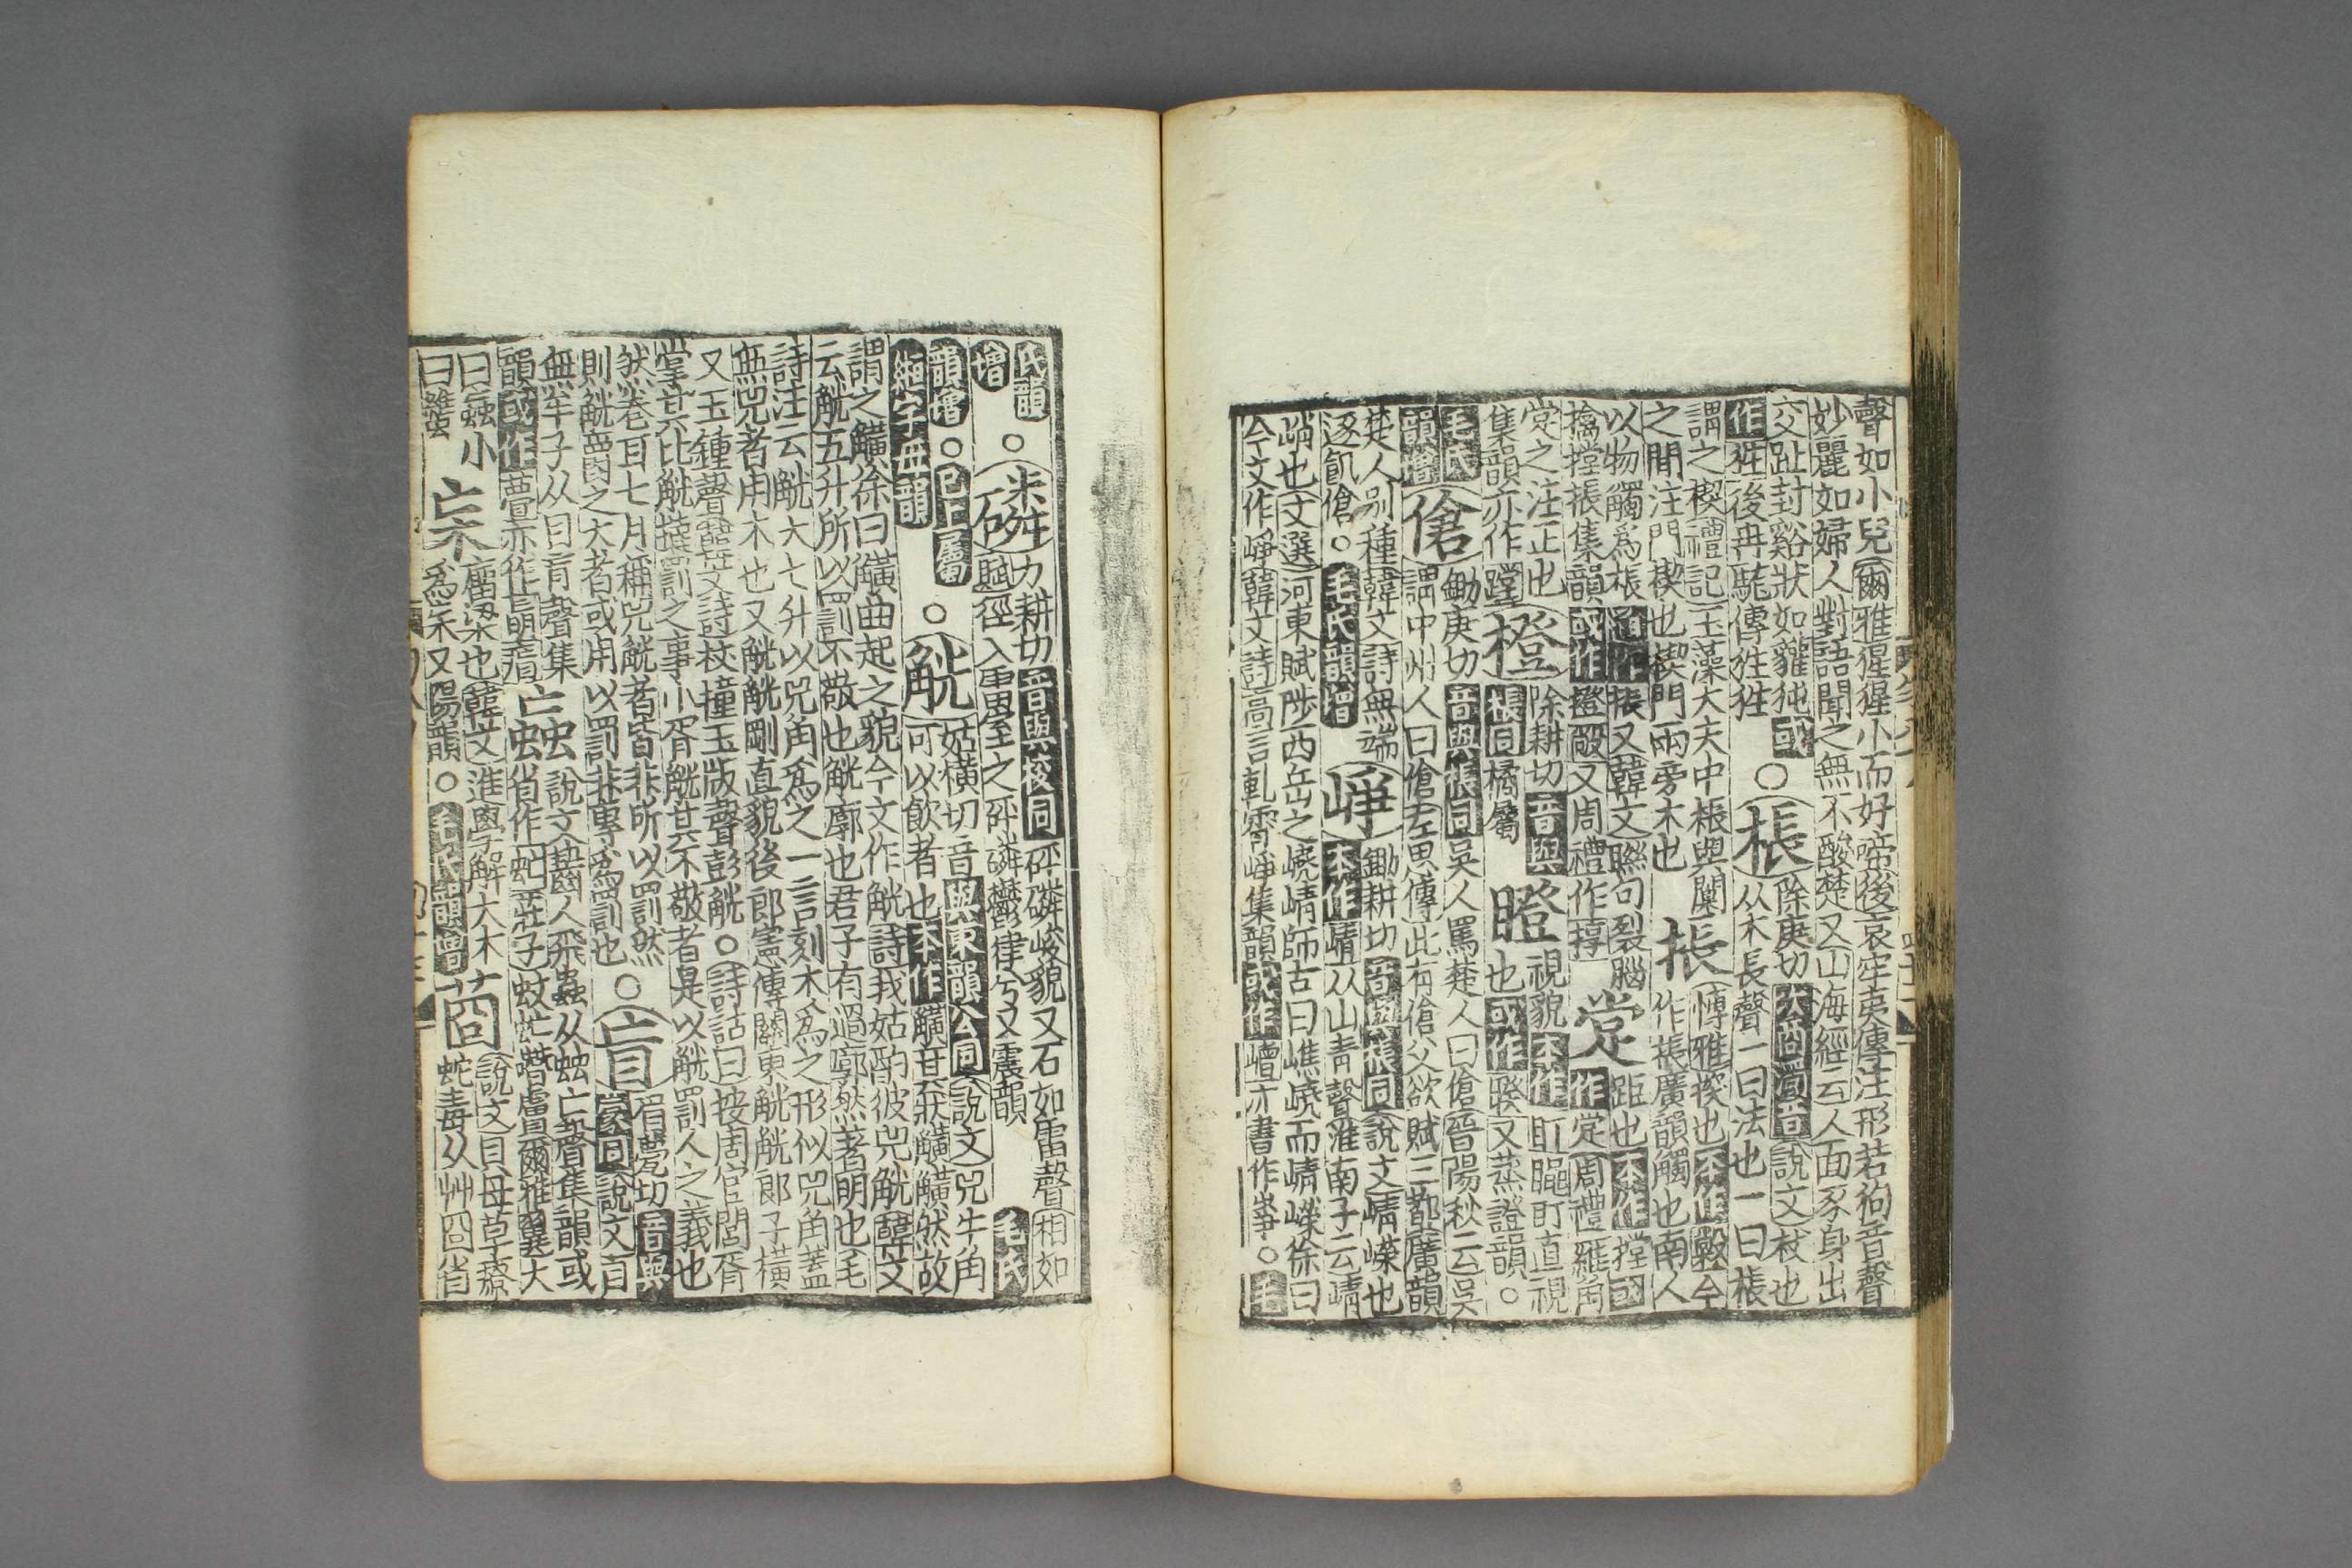 聲如小兒爾雅猩猩小而好啼後哀牢夷傳注形若狗音聲
妙麗如婦人對語聞之無不酸楚又山海經云人面豕身出
交趾封谿狀如貛㹠或
作狌後冉駹傳狌狌
○棖
除庚切次商濁音說文杖也
从木長聲一曰法也一曰棖
謂之楔禮記玉藻大夫中棖與闑
之間注門楔也楔門兩旁木也
掁
博雅揬也本作㲂今
作棖廣韻觸也南人
以物觸爲棖通作棖又韓文聯句裂腦
擒摚掁集韻或作撜㲂又周禮作㨃
㲋
距也本作摚或
作㲋周禮維角
㲋之注正也
集韻亦作𨅝
橙
除耕切音與
棖同橘屬
瞪
視貌本作盯䁝盯直視
也或作睽又蒸證韻○
毛氏
韻增
傖
鋤庚切音與棖同吳人罵楚人曰傖晉陽秋云吳
謂中州人曰傖左思傳此有傖父欲賦三都廣韻
楚人別種韓文詩無端
逐飢傖○毛氏韻增
崢
鋤耕切音與棖同說文崝嶸也
本作崝从山青聲淮南子云崝
峭也文選河東賦陟西岳之嶢崝師古曰嶕嶢而崝嶸徐曰
今文作崢韓文詩高言軋霄崢集韻或作嶒亦書作崝○毛
氏韻
增
○磷
力耕切音與棱同砰磷峻貌又石如雷聲相如
賦徑入雷室之砰磷鬱律兮又震韻
毛氏
韻增○已上屬
絚字母韻
○觥
姑橫切音與東韻公同說文兕牛角
可以飲者也本作觵其狀觵觵然故
謂之觵徐曰觵曲起之貌今文作觥詩我姑酌彼兕觥韓文
云觥五升所以罰不敬也觥廓也君子有過廓然著明也毛
詩注云觥大七升以兕角爲之一言刻木爲之形似兕角蓋
無兕者用木也又觥觥剛直貌後郎憲傳關東觥觥郎子橫
又玉鍾聲韓文詩枝撞玉版聲彭觥○詩詁曰按周官閭胥
掌其比觥撻罰之事小胥觥其不敬者是以觥罰人之義也
然卷耳七月稱兕觥者皆非所以罰然
則觥罍爵之大者或用以罰非專爲罰也
○盲
眉甍切音與
蒙同說文目
無牟子从目盲聲集
韻或作瞢亦作𥉻𥇀
䖟
說文齧人飛蟲从䖵亡聲集韻或
省作虻莊子蚊虻噆膚爾雅翼大
曰䖟小
曰䗈
杗
廇梁也韓文進學解大木
爲杗又陽韻○毛氏韻增
莔
說文貝母草療
蛇毒从艸囧省